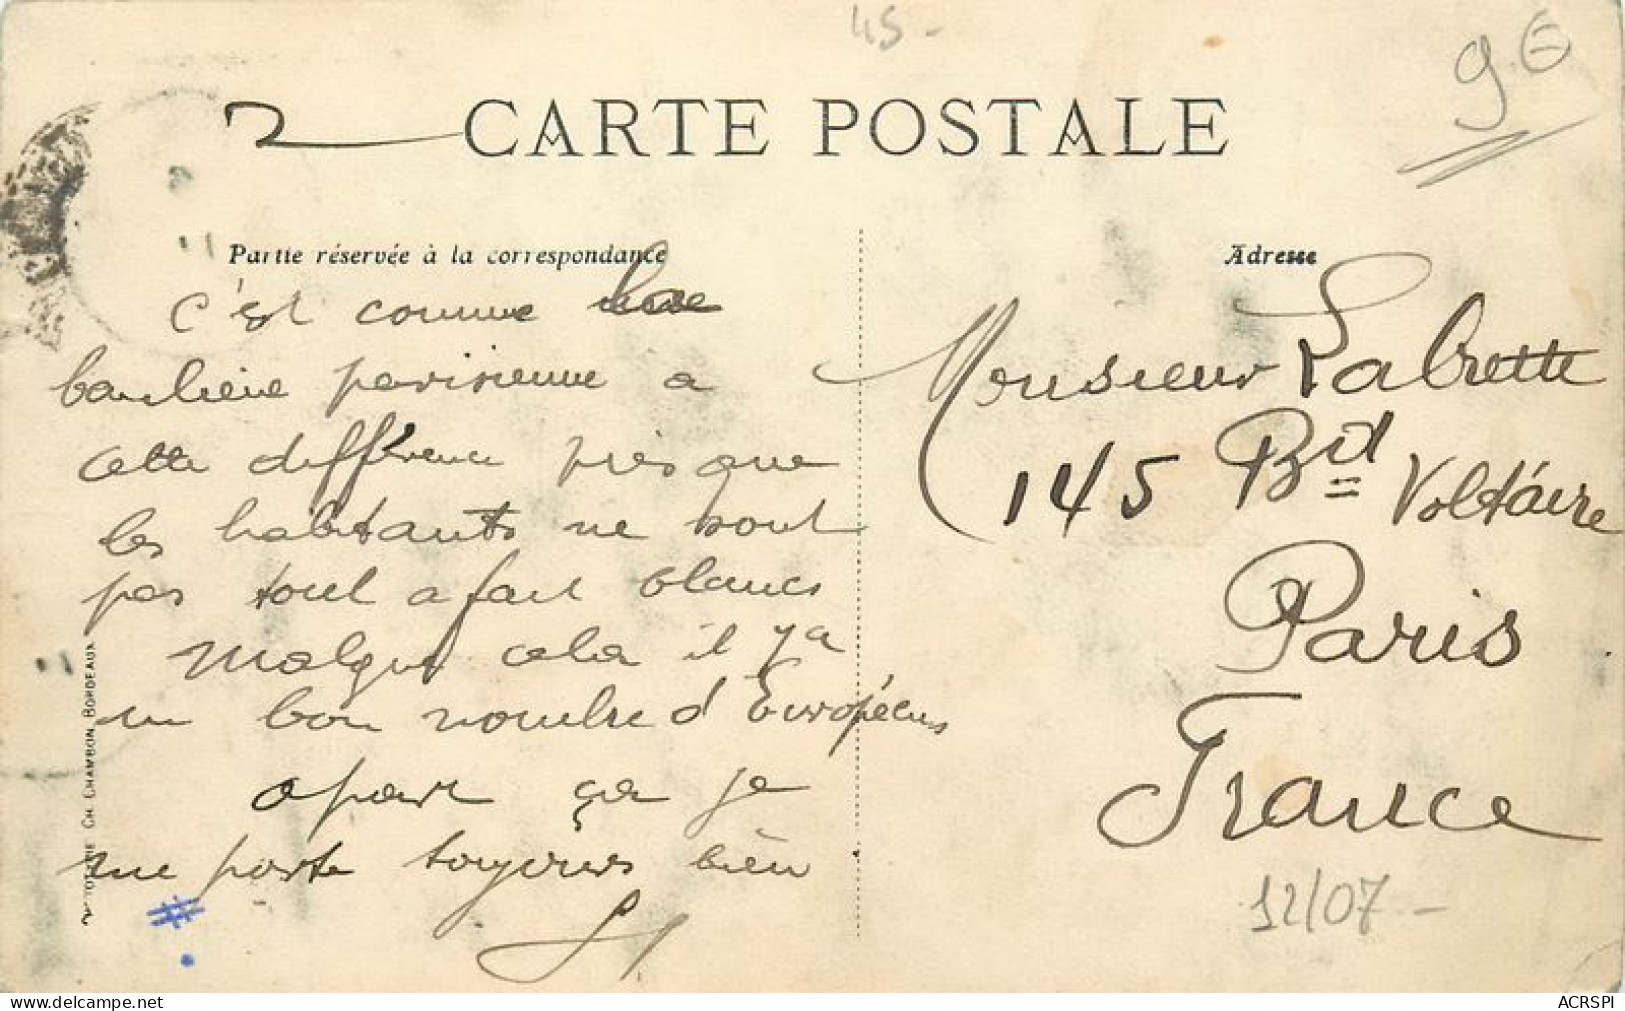 45-
9.€
2
CARTE POSTALE
Partie réservée à la correspondance
c'est comme la
banlieue parisienne a
cette différence près que
les habitants ne sont
pas tout a fait blancs
Malgré cela il y a
un bon nombre d'Européens
apart ça je
me porte toujours bien
Adresse
Monsieur Labrette
145 Bd Voltaire
Paris
France
12/07-
PHOTOTYPIE CH CHAMBON BORDEAUX
#.
ACRSPI
delcampe.net